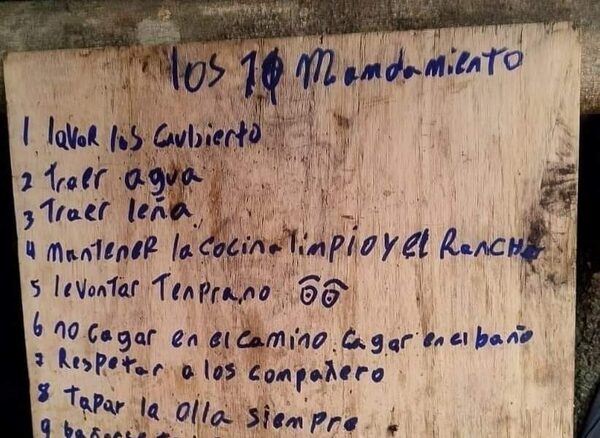 los 10 Mandamiento
1 lavar los Caubierto
2 traer agua
3 traer leña
4 mantener la cocina limpio y el Rancho
5 levontar Tenprano
6 no cagar en el camino cagar en el baño
7 Respetar a los compañero
8 tapar la olla siempre
9